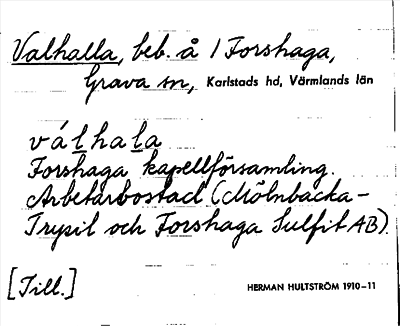 Valhalla, beb. å 1 Forshaga,
Grava sn, Karlstads hd, Värmlands län
válhala
Forshaga kapellförsamling.
Arbetarbostad (Mölnbacka-
Trysil och Forshaga Sulfit AB).
[Till.]
HERMAN HULTSTRÖM 1910-11